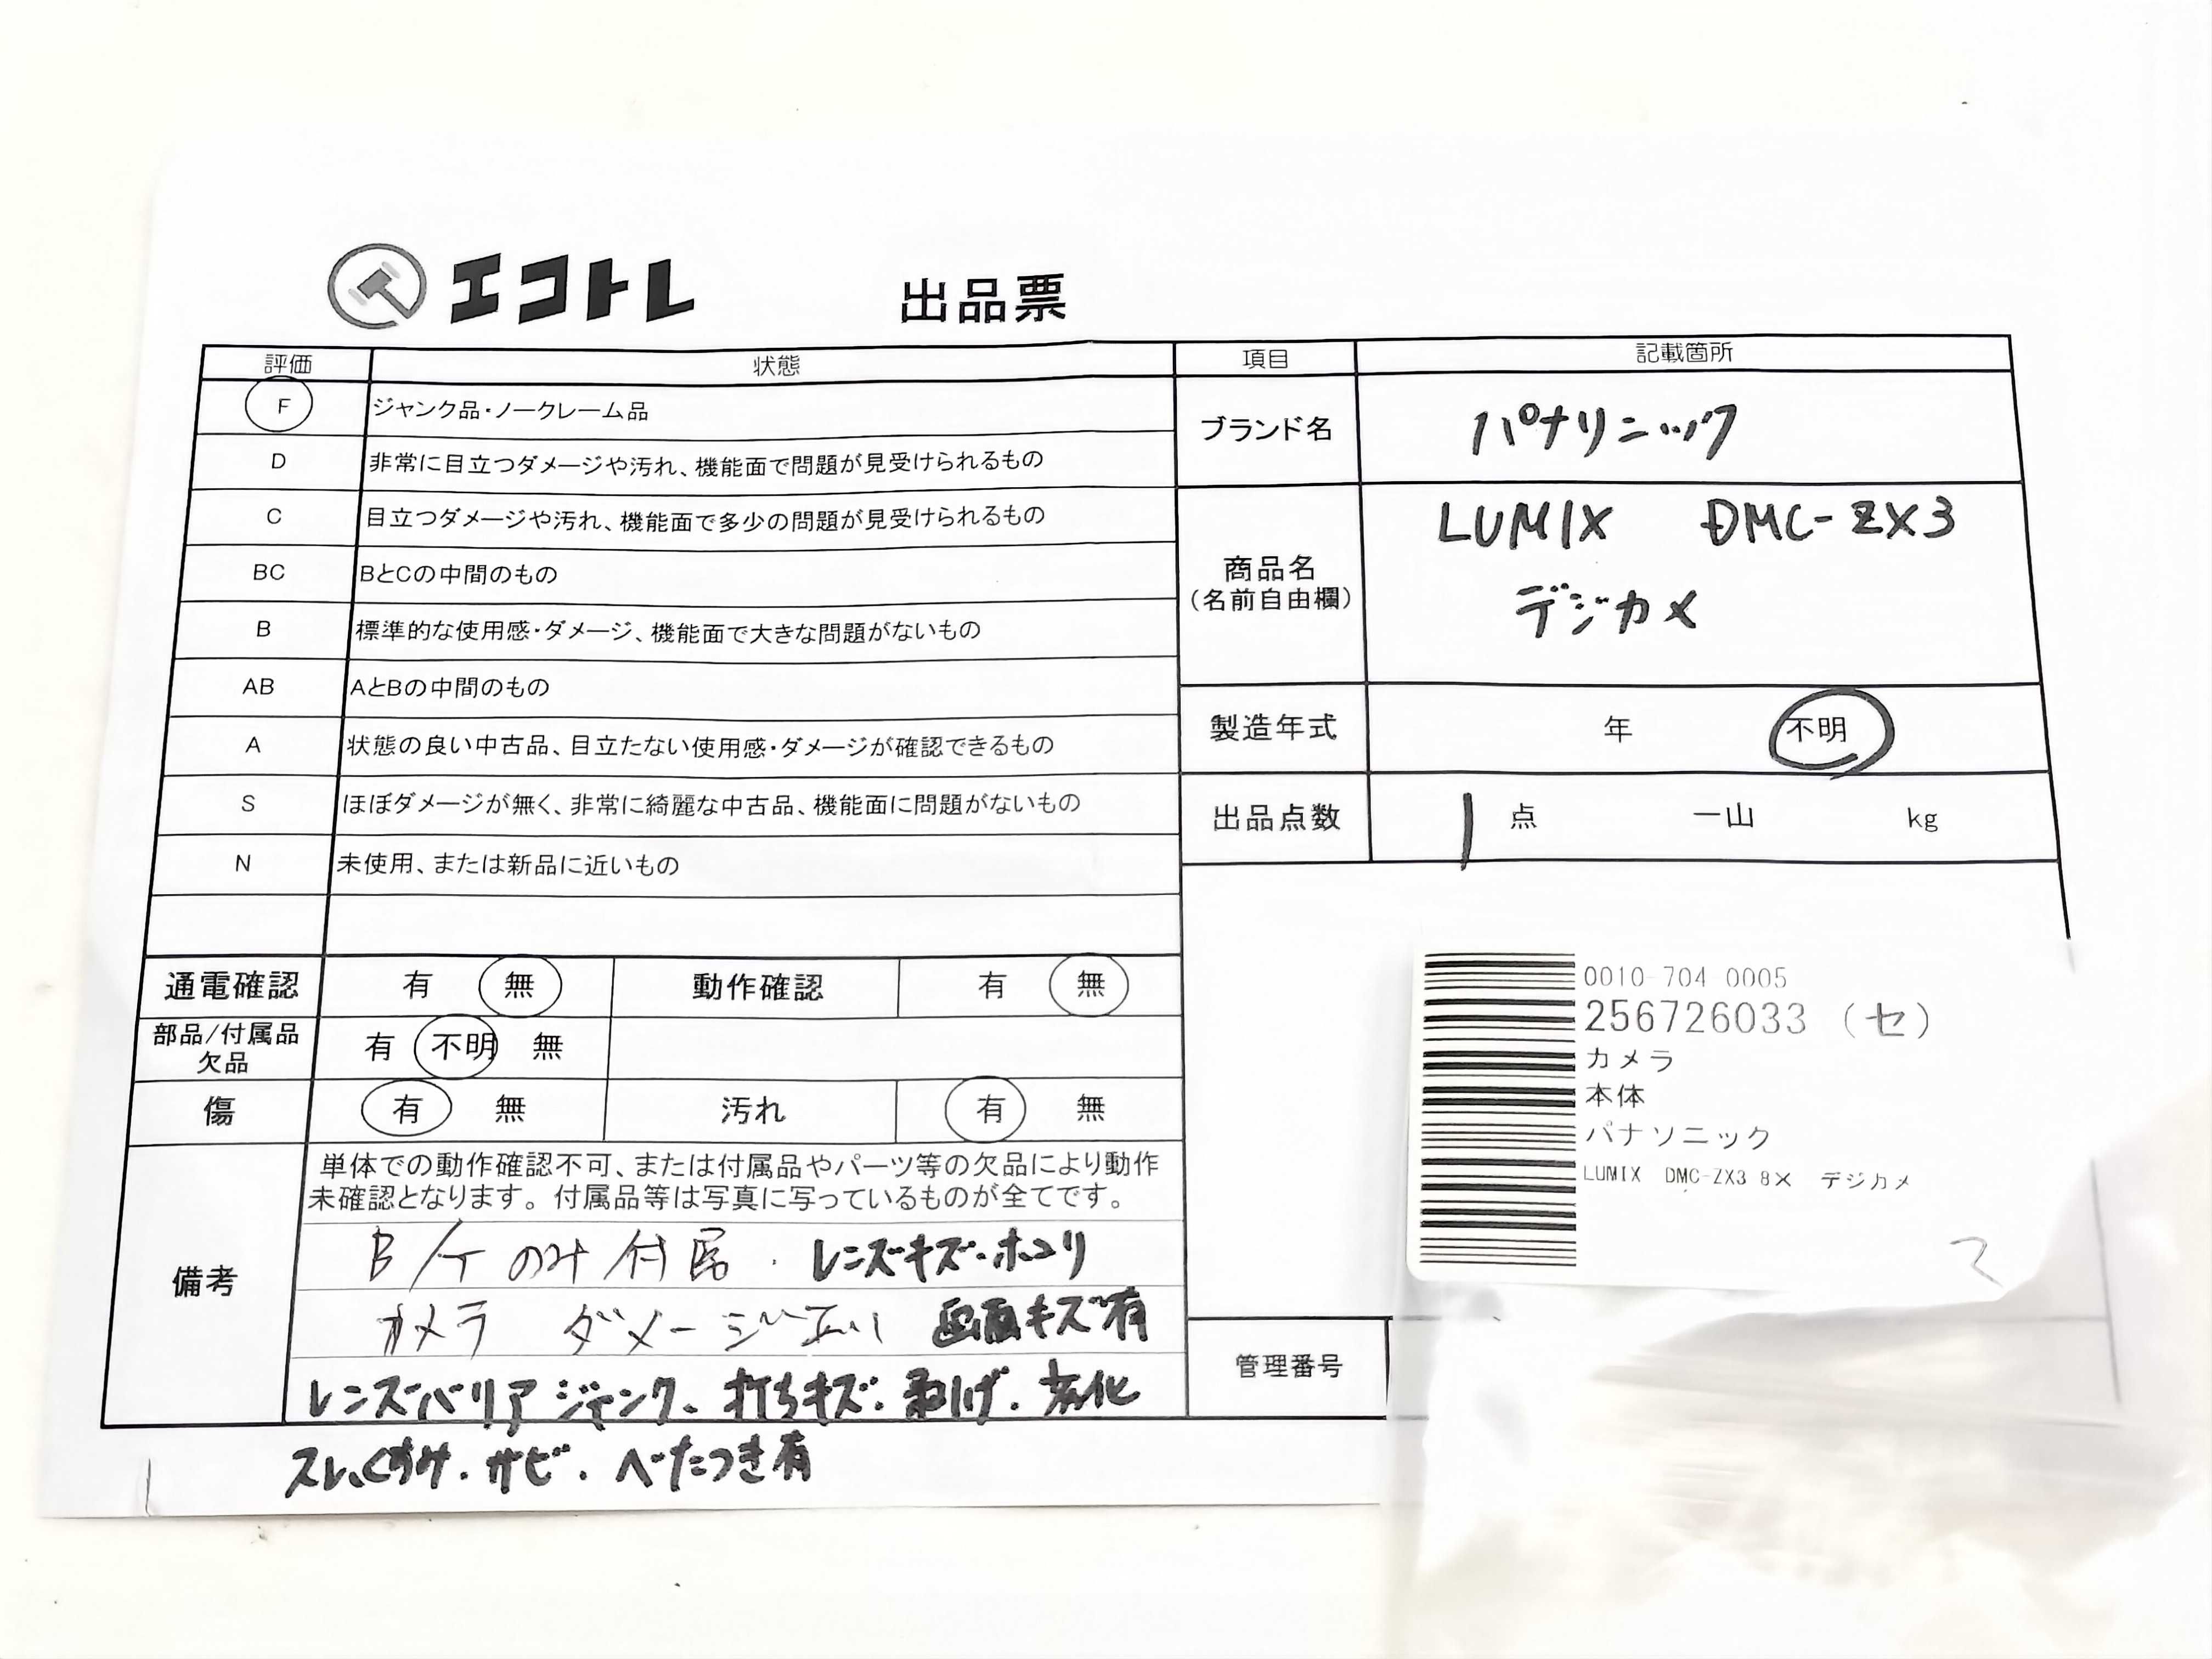 エコトレ 出品票
評価 状態
F ジャンク品・ノークレーム品
D 非常に目立つダメージや汚れ、機能面で問題が見受けられるもの
C 目立つダメージや汚れ、機能面で多少の問題が見受けられるもの
BC BとCの中間のもの
B 標準的な使用感・ダメージ、機能面で大きな問題がないもの
AB AとBの中間のもの
A 状態の良い中古品、目立たない使用感・ダメージが確認できるもの
S ほぼダメージが無く、非常に綺麗な中古品、機能面に問題がないもの
N 未使用、または新品に近いもの
通電確認 有 無 動作確認 有 無
部品/付属品
欠品
有 不明 無
傷 有 無 汚れ 有 無
備考
単体での動作確認不可、または付属品やパーツ等の欠品により動作
未確認となります。付属品等は写真に写っているものが全てです。
B/ケのみ付属. レンズキズ・ホコリ
カメラ ダメージ 画面キズ有
レンズバリアジャンク、打ちキズ・剥げ・劣化
スレ、くすみ・サビ・べたつき有
項目 記載箇所
ブランド名 パナソニック
商品名
(名前自由欄)
LUMIX DMC-ZX3
デジカメ
製造年式 年 不明
出品点数 1 点 一山 kg
0010-704 0005
256726033 (セ)
カメラ
本体
パナソニック
LUMIX DMC-ZX3 8× デジカメ
管理番号